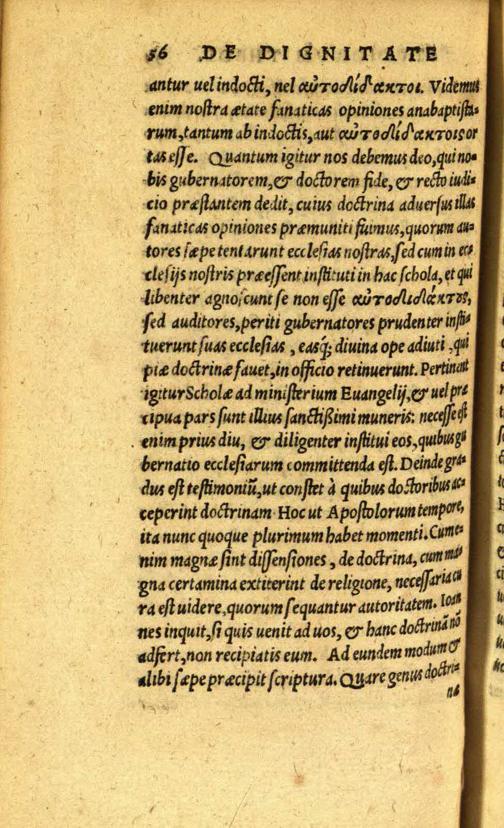 56 DE DIGNITATE
antur uel indocti, uel αὐτοδίδακτοι. Videmus
enim nostra ætate fanaticas opiniones anabaptista-
rum, tantum ab indoctis, aut αὐτοδιδάκτοις or
tas esse. Quantum igitur nos debemus deo, qui no-
bis gubernatorem, & doctorem fide, & recto iudi-
cio præstantem dedit, cuius doctrina aduersus illas
fanaticas opiniones præmuniti fuimus, quorum au-
tores sæpe tentarunt ecclesias nostras, sed cum in ec-
clesijs nostris præessent instituti in hac schola, et qui
libenter agnoscunt se non esse αὐτοδιδάκτους,
sed auditores, periti gubernatores prudenter insti-
tuerunt suas ecclesias, easq́; diuina ope adiuti, qui
piæ doctrinæ fauet, in officio retinuerunt. Pertinent
igitur Scholæ ad ministerium Euangelij, & uel præ
cipua pars sunt illius sanctißimi muneris: necesse est
enim prius diu, & diligenter institui eos, quibus gu
bernatio ecclesiarum committenda est. Deinde gra-
dus est testimoniũ, ut constet à quibus doctoribus ac-
ceperint doctrinam Hoc ut Apostolorum tempore,
ita nunc quoque plurimum habet momenti. Cum e-
nim magnæ sint dissensiones, de doctrina, cum ma-
gna certamina extiterint de religione, necessaria cu
ra est uidere, quorum sequantur autoritatem. Ioan
nes inquit, si quis uenit ad uos, & hanc doctrinã nõ
adfert, non recipiatis eum. Ad eundem modum &
alibi sæpe præcipit scriptura. Quare genus doctri-
næ